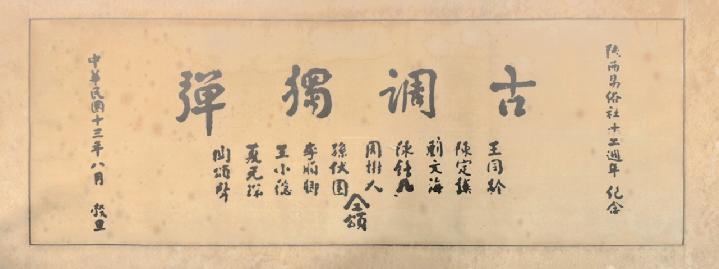 陝西易俗社十二週年 紀念
古調獨彈
王同齡
陳定謨
劉文海
陳鍾凡
周樹人
孫伏園
李順卿
王小隱
夏元瑮
関頌聲
仝頌
中華民國十三年八月 穀旦